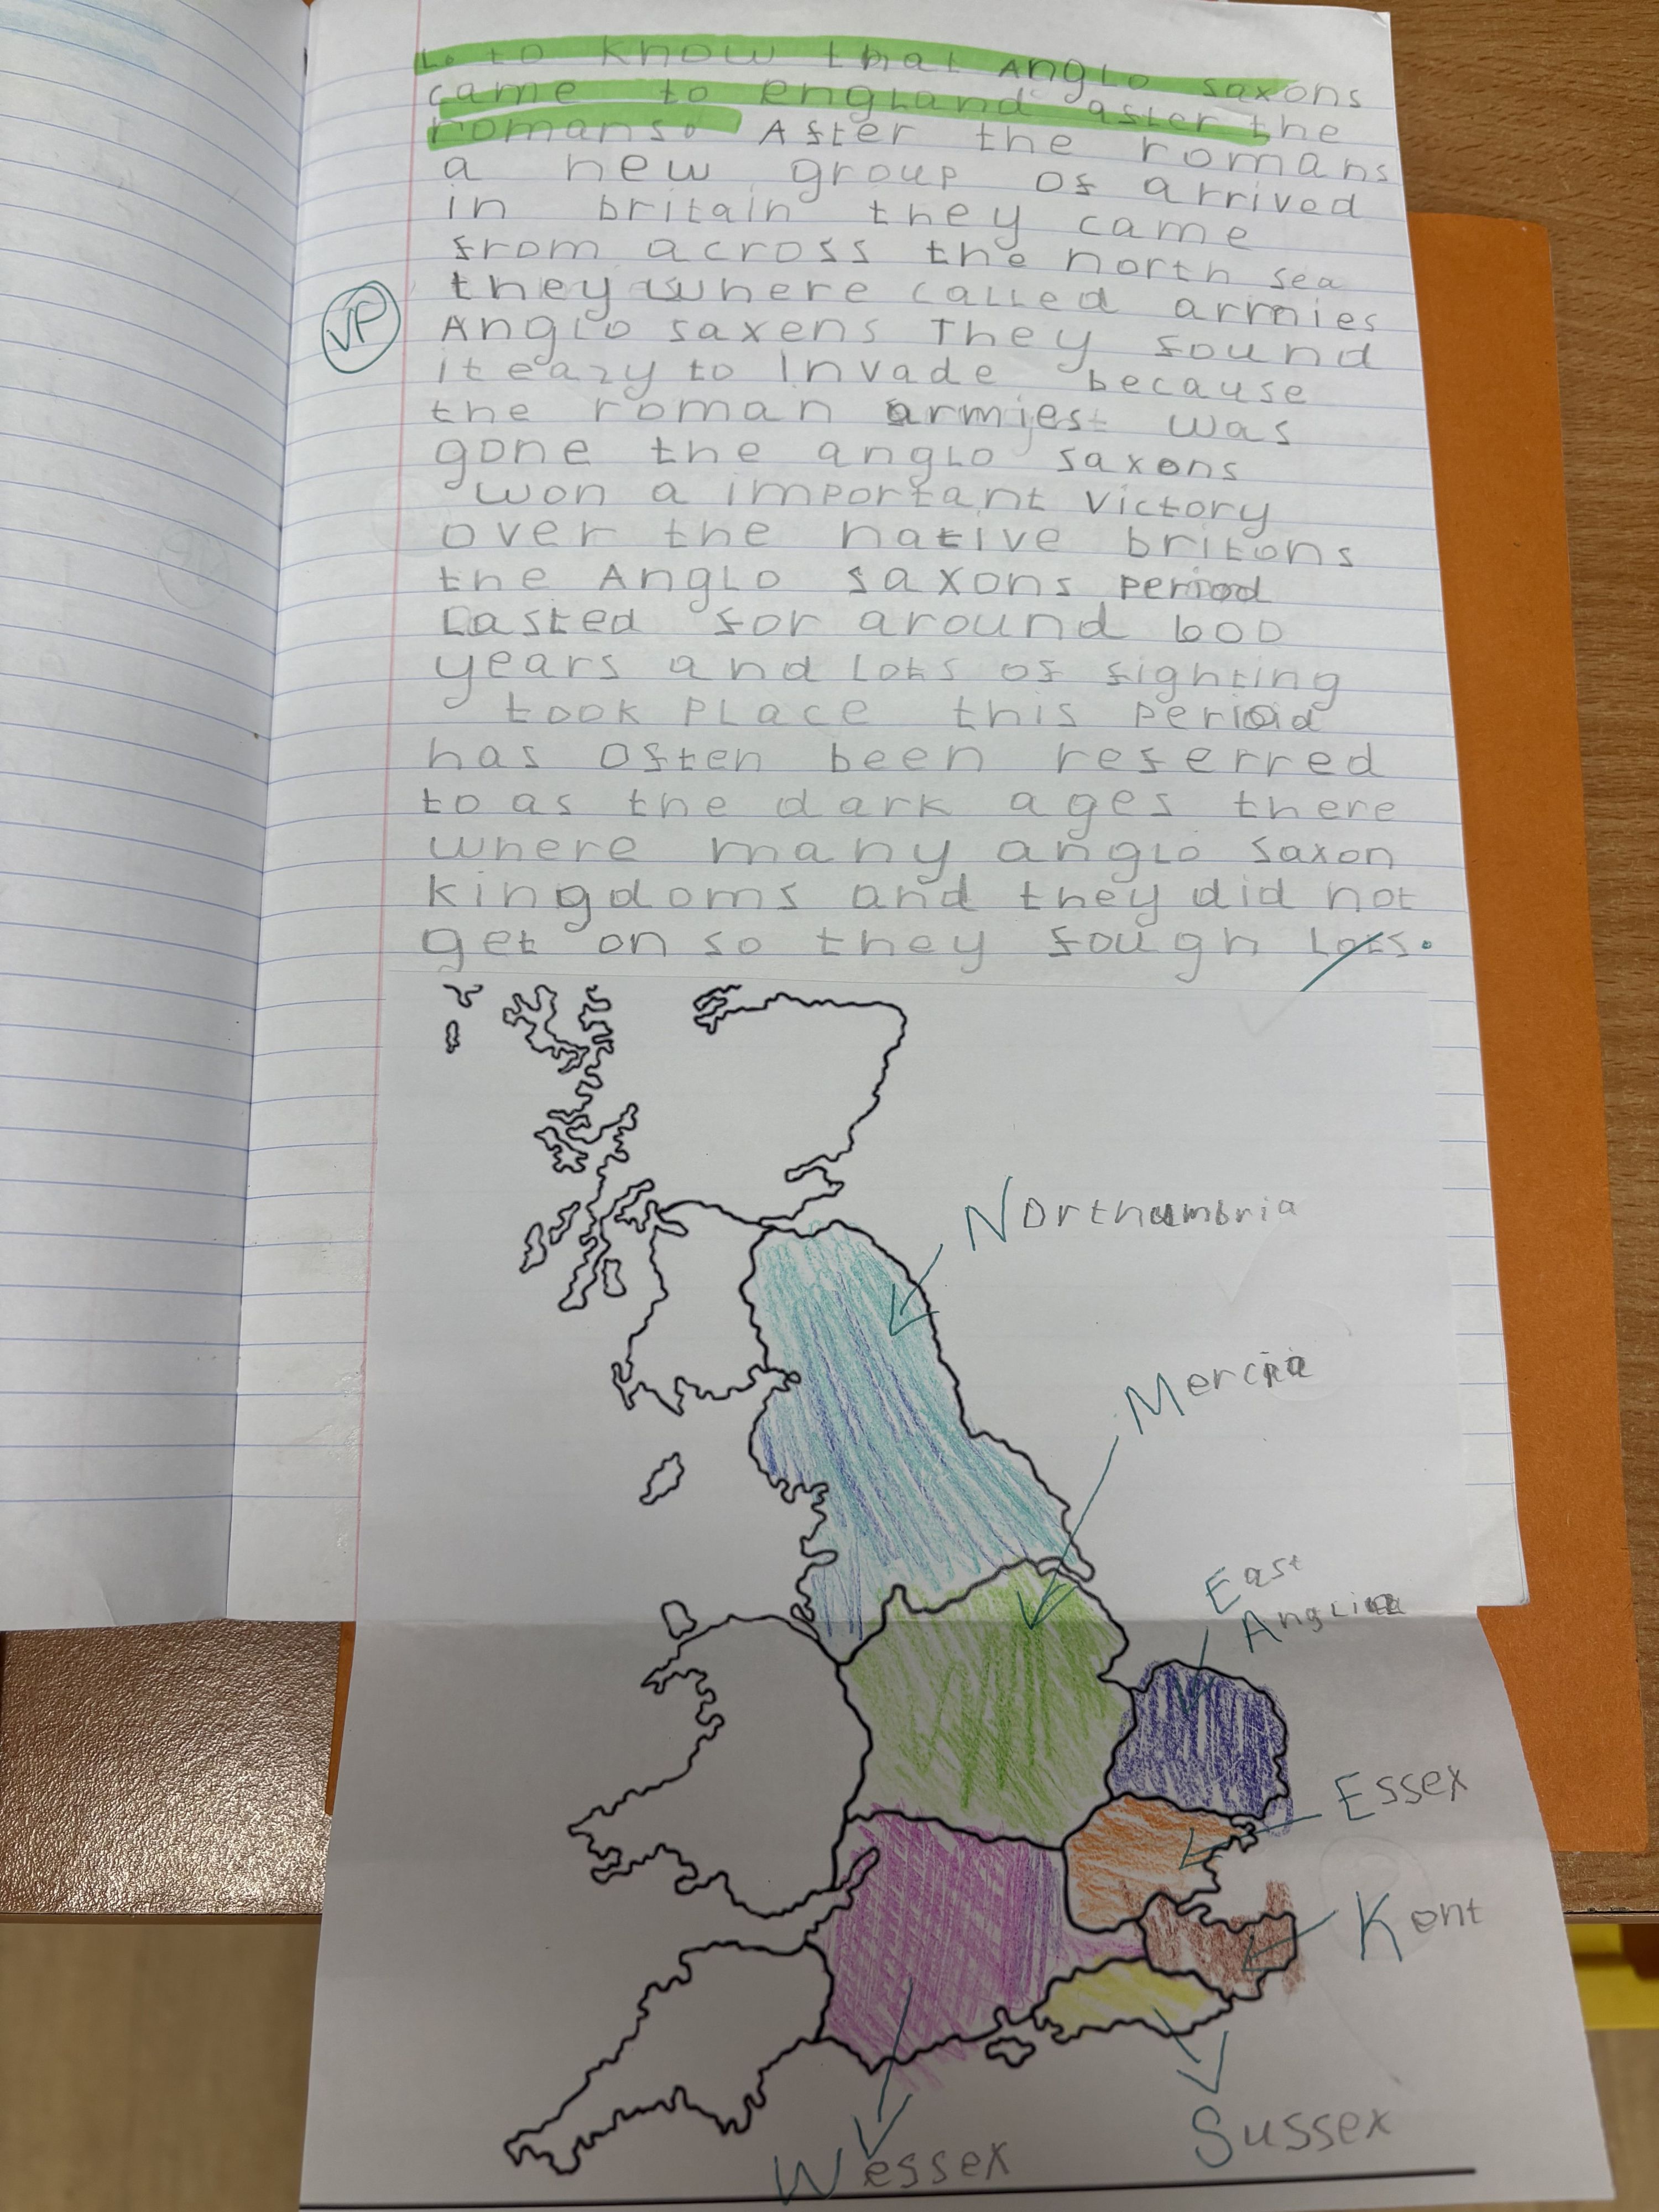 L. to know that Anglo saxons
came to england after the
romans. After the romans
a new group of arrived
in britain they came
from across the north sea
they where called armies
Anglo saxens They found
it eazy to Invade because
the roman armiest was
gone the anglo saxons
won a important victory
over the native britons
the Anglo saxons period
Lasted for around 600
years and lots of fighting
took place this period
has often been referred
to as the dark ages there
where many anglo saxon
kingdoms and they did not
get on so they fough lots.
VP
Northumbria
Mercia
East
Anglia
Essex
Kent
Sussex
Wessex